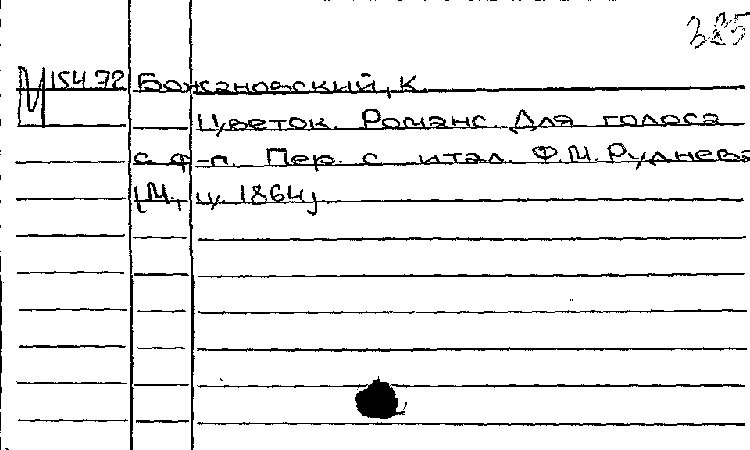 385
М 154.72 Божановский, К.
Цветок. Романс. Для голоса
с ф-п. Пер. с итал. Ф.М. Руднева
[М., ц. 1864]